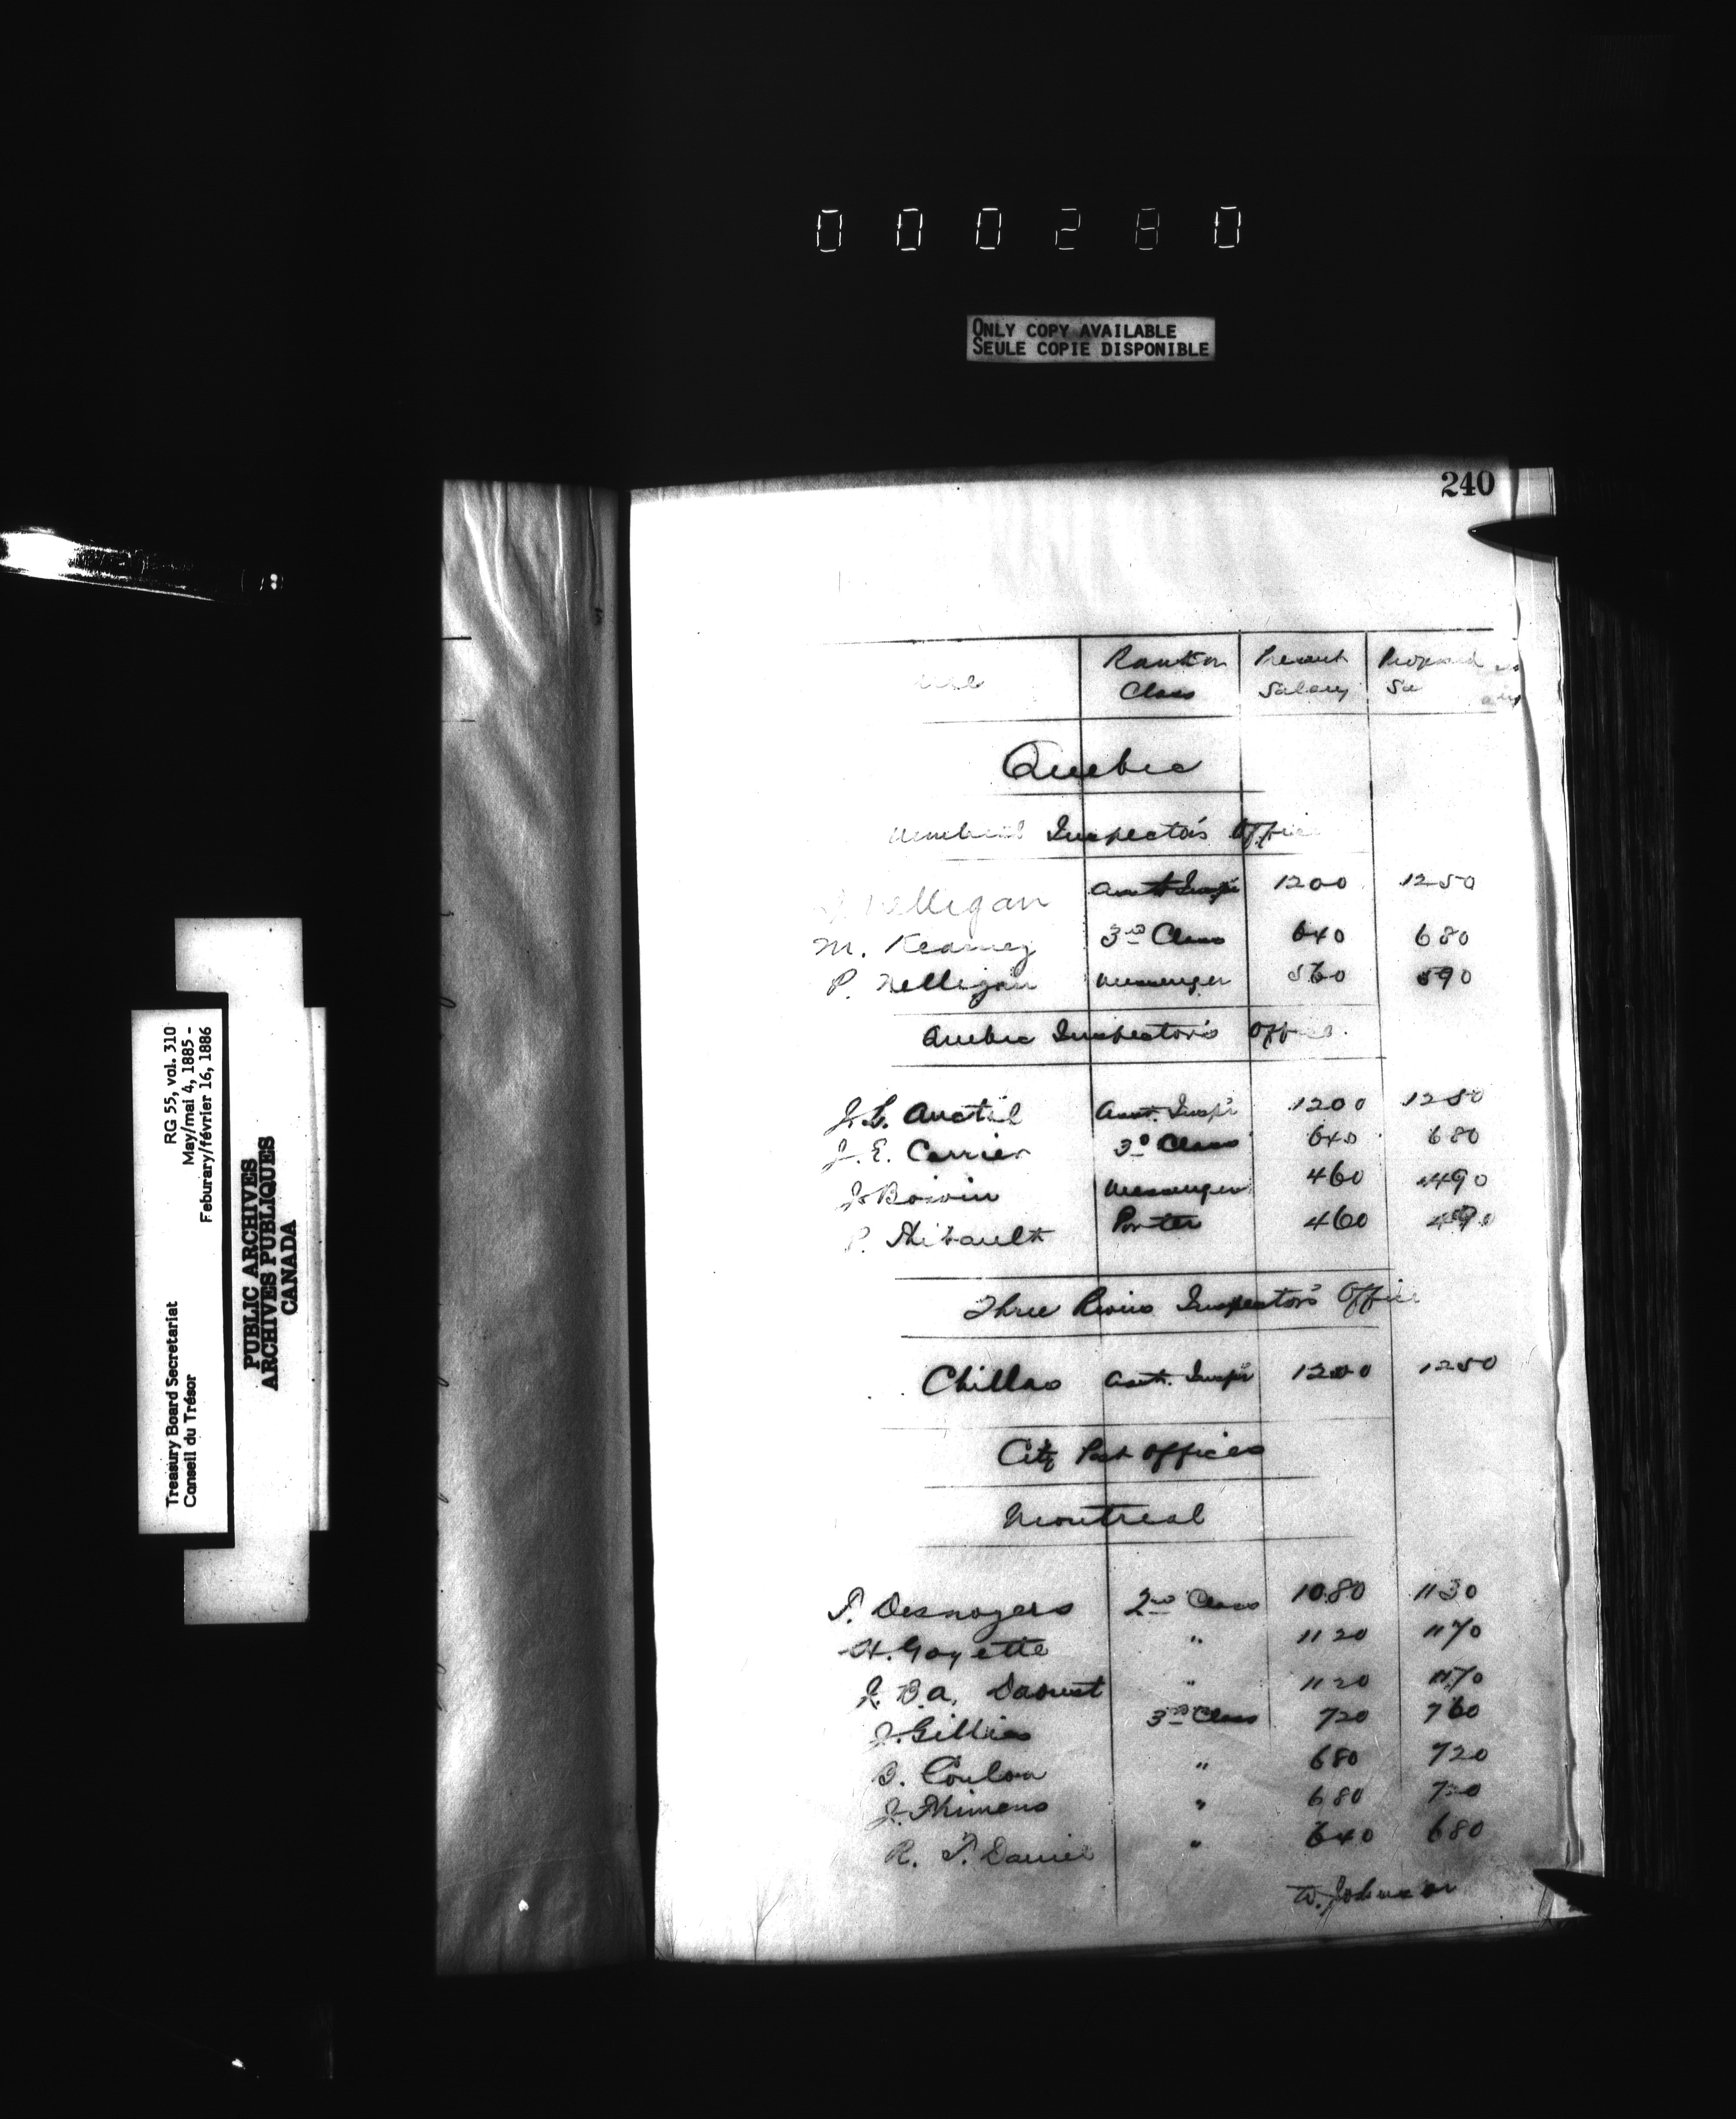 000280
ONLY COPY AVAILABLE
SEULE COPIE DISPONIBLE
RG 55, vol. 310
May/mai 4, 1885 -
Feburary/février 16, 1886
Treasury Board Secretariat
Conseil du Trésor
PUBLIC ARCHIVES
ARCHIVES PUBLIQUES
CANADA
240
Rank or Class Present Salary Proposed
Quebec
Inspector's Office
Nelligan Asst Inspr 1200 1250
M. Kearney 3rd Class 640 680
P. Nelligan Messenger 560 590
Quebec Inspector's Office
Auctil Asst. Inspr 1200 1250
J. E. Carrier 3d Class 640 680
J. Boivin Messenger 460 490
P. Thibault Porter 460 490
Three Rivers Inspector's Office
Chillas Asst. Inspr 1200 1250
City Post Offices
Montreal
Desnoyers 2nd Class 1080 1130
H. Goyette " 1120 1170
J. B. A. Daoust " 1120 1170
J. Gillies 3rd Class 720 760
Coulon " 680 720
J. Thimens " 680 720
R. T. Daniel " 640 680
W. Johnson